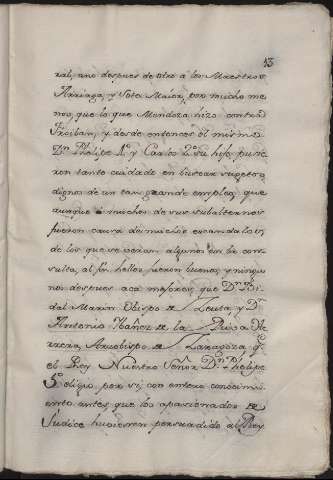 13
ral, uno despues de otro a los Maestros
Arriaga, y Sota Maior, por mucho me
nos, que lo que Mendoza hizo contra
Froilan, y desde entonces el mismo
Dn. Phelipe 4º y Carlos 2º su hijo, pusie
ron tanto cuidado en buscar sugetos
dignos de un tan grande empleo, que
aunque muchos de sus subalternos
fueron causa de muchos escandalos,
de los que se verán algunos en la con
sulta, al fin hellos fueron buenos, y ningu
no despues acá mejores, que Dn. Vi
dal Marin Obispo de Zeuta, y Dn.
Antonio Ibáñez de la Riva He
rrera, Arzobispo de Zaragoza, qe.
el Rey Nuestro Señor Dn. Phelipe
5º eligio por si, con entero conocimi
ento, antes que los apasionados de
Judice huviesen persuadido al Rey